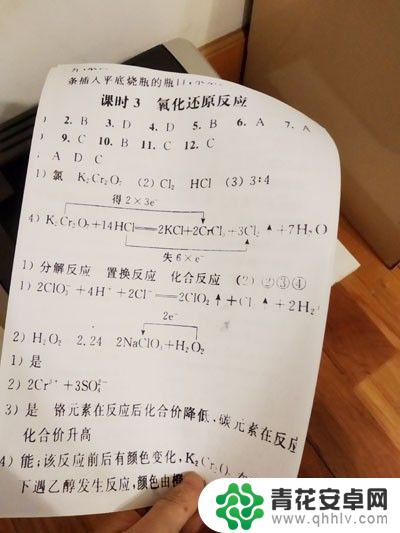 条插入平底烧瓶的瓶口
课时3 氧化还原反应
2. B 3. D 4. D 5. B 6. A 7. A
9. C 10. B 11. C 12. C
A D C
1) 氯 K₂Cr₂O₇ (2) Cl₂ HCl (3) 3∶4
得 2×3e⁻
4) K₂Cr₂O₇+14HCl══2KCl+2CrCl₃+3Cl₂↑+7H₂O
失 6×e⁻
1) 分解反应 置换反应 化合反应 (2) ②③④
1) 2ClO₃⁻+4H⁺+2Cl⁻══2ClO₂↑+Cl₂↑+2H₂
2e⁻
2) H₂O₂ 2.24 2NaClO₃+H₂O₂
1) 是
2) 2Cr³⁺+3SO₄²⁻
3) 是 铬元素在反应后化合价降低、碳元素在反应
化合价升高
4) 能；该反应前后有颜色变化，K₂Cr₂O₇
下遇乙醇发生反应，颜色由橙
青花安卓网
www.qhhlv.com